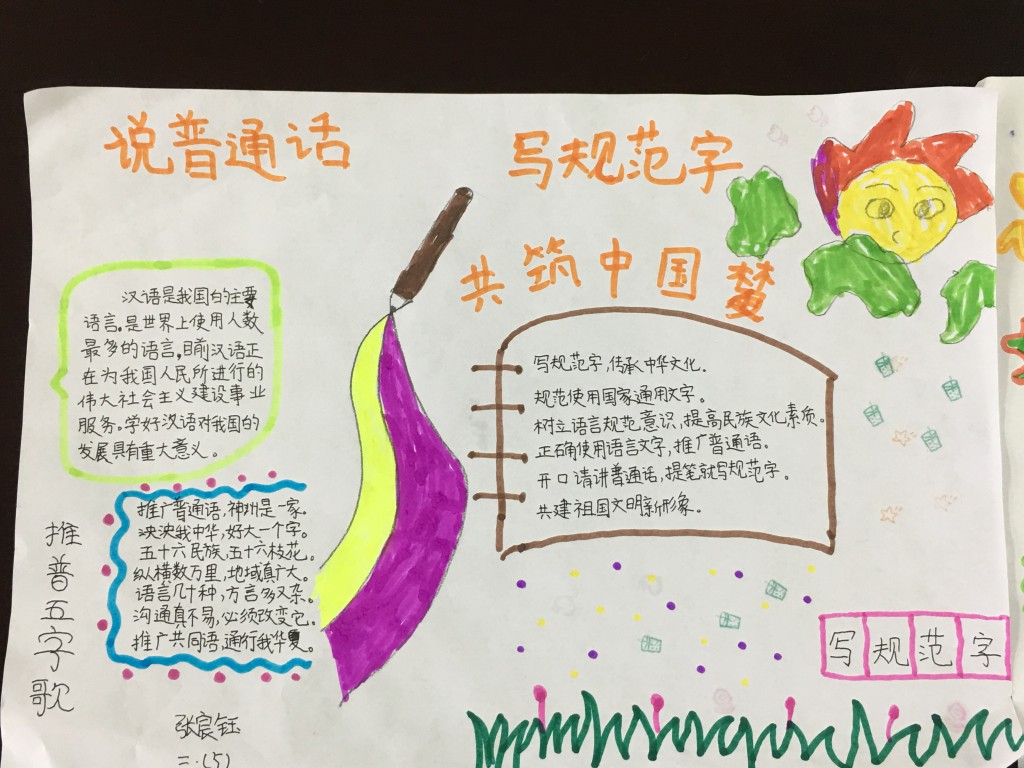 说普通话
写规范字
共筑中国梦
汉语是我国的主要
语言,是世界上使用人数
最多的语言,目前汉语正
在为我国人民所进行的
伟大社会主义建设事业
服务。学好汉语对我国的
发展具有重大意义。
写规范字,传承中华文化.
规范使用国家通用文字。
树立语言规范意识,提高民族文化素质。
正确使用语言文字,推广普通话。
开口请讲普通话,提笔就写规范字。
共建祖国文明新形象。
推普五字歌
推广普通话,神州是一家。
泱泱我中华,好大一个字。
五十六民族,五十六枝花。
纵横数万里,地域真广大。
语言几十种,方言多又杂。
沟通真不易,必须改变它。
推广共同语,通行我华夏。
写规范字
张宸钰
二.(5)